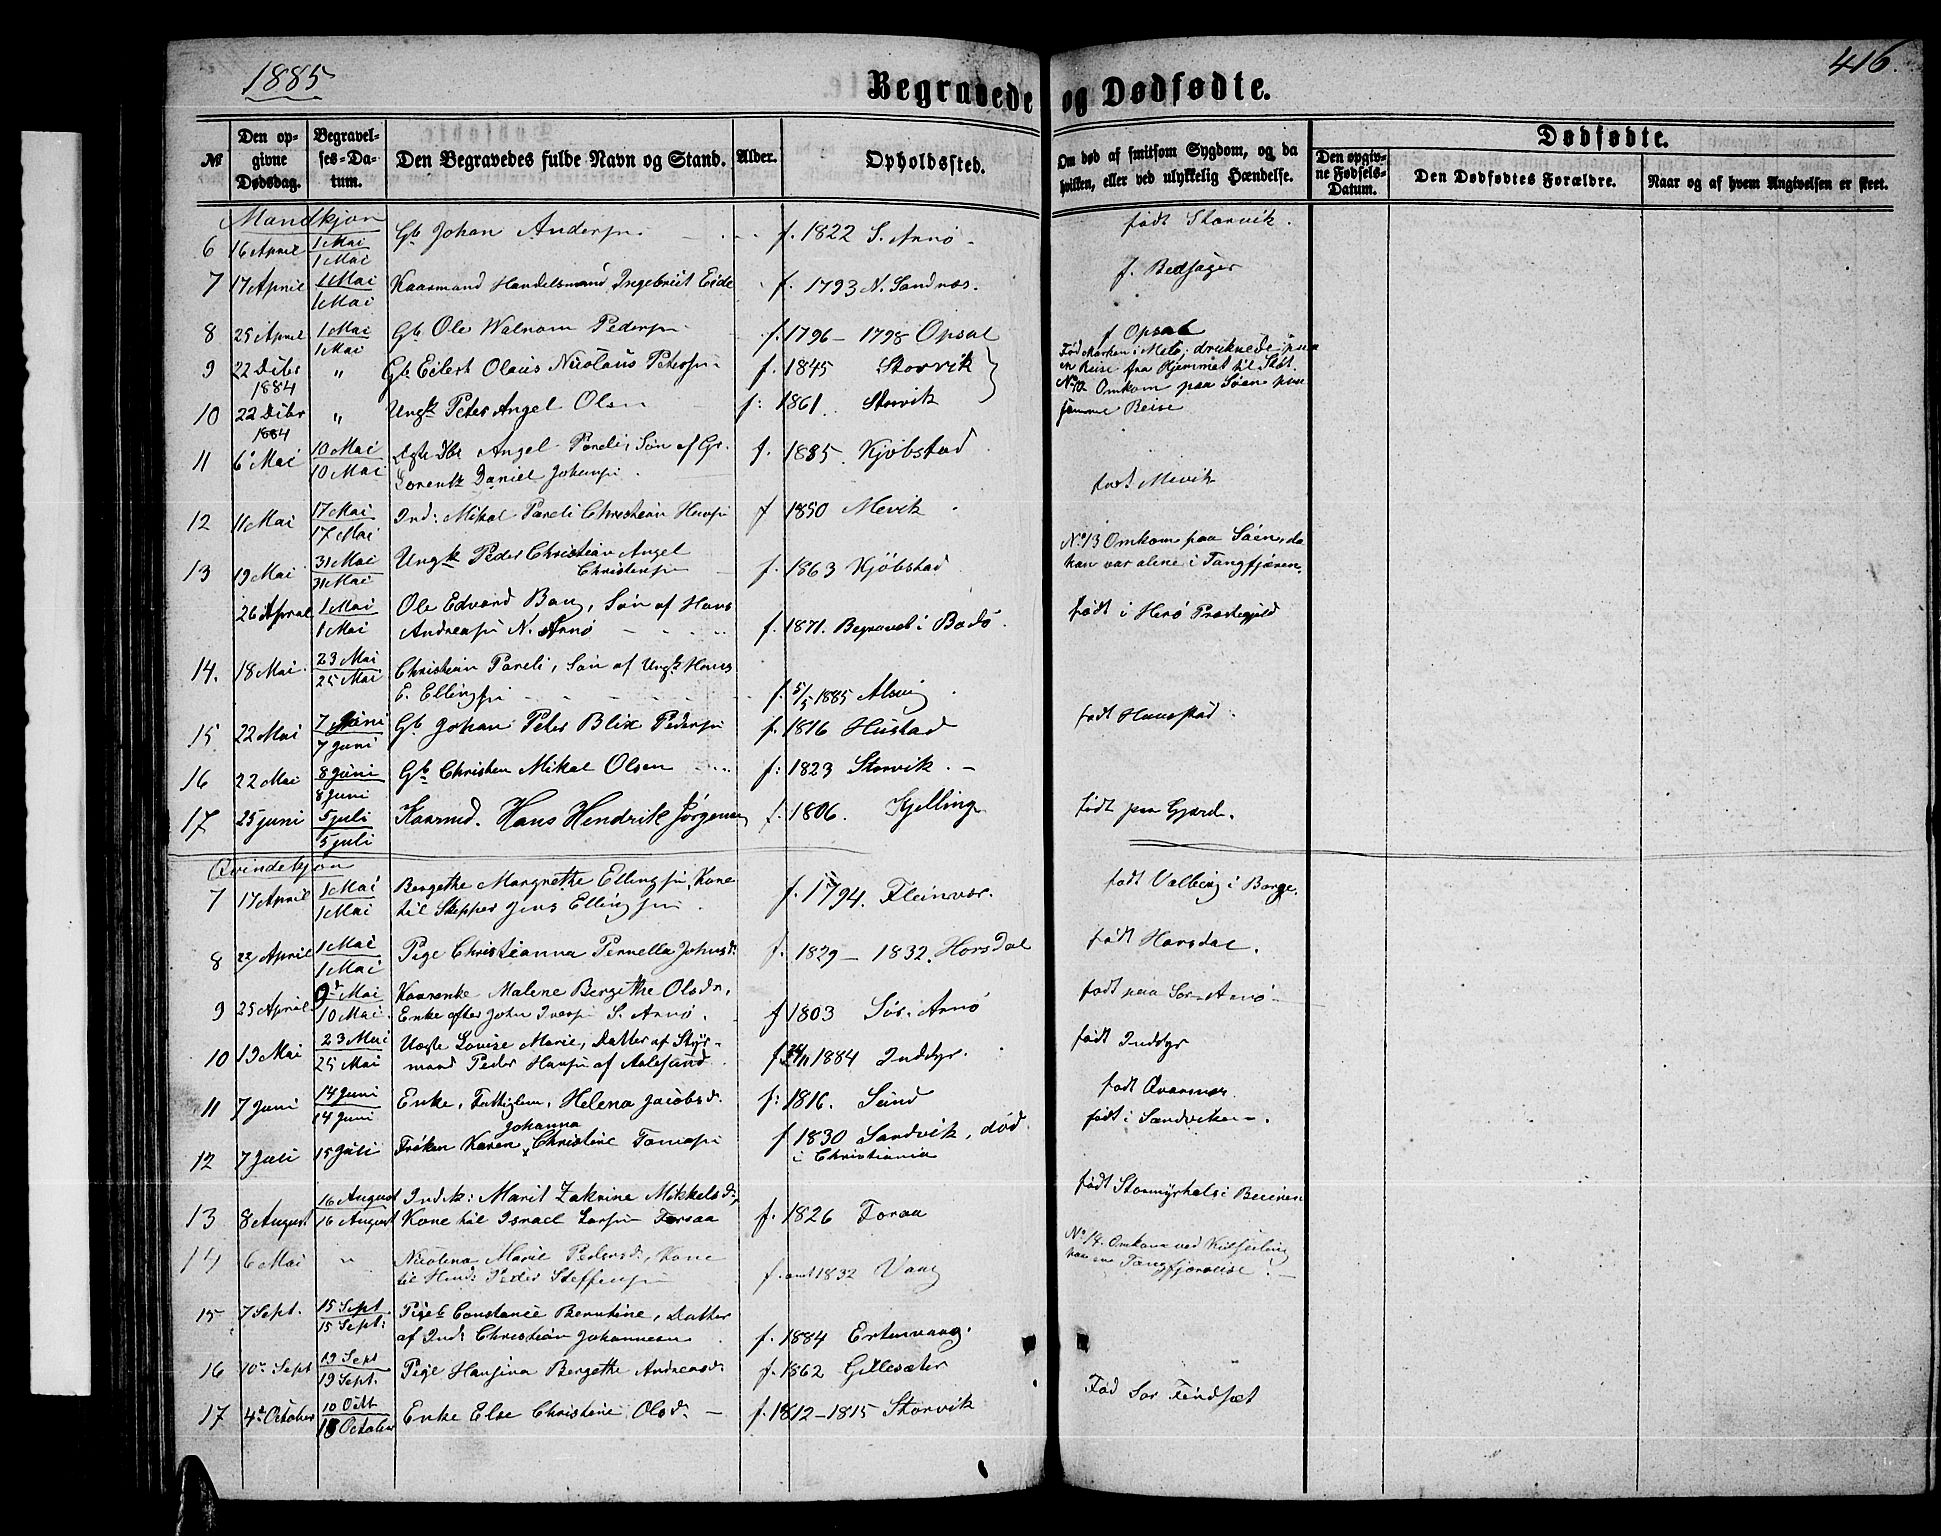 1885
416.
Begravede og Dødfødte.
№
Den op-
givne
Dødsdag.
Begravel-
ses-Da-
tum.
Den Begravedes fulde Navn og Stand.
Alder.
Opholdssted.
Om død af smitsom Sygdom, og da
hvilken, eller ved ulykkelig Hændelse.
Dødfødte.
Den opgiv-
ne Fødsels-
Datum.
Den Dødfødtes Forældre.
Naar og af hvem Angivelsen er skeet.
Mandkjøn
6 16 April 1 Mai 1 Mai Gb Johan Andersen f. 1822 S. Arnø født Storvik.
7 17 April 1 Mai 1 Mai Kaarmand Handelsmand Ingebrigt Eide f. 1793 N. Sandnæs. f.
8 25 April 1 Mai 1 Mai Gb Ole Walnum Pedersen f. 1796 - 1798 Opsal f Opsal
9 22 Dcbr 1884 " Gb Eilert Olaus Nicolaus Petersen f. 1845 Storvik
Fød Marken i Melø; druknede paa
en Reise fra Hjemmet til Støt.
10 22 Dcbr 1884 " Ungk Peter Angel Olsen f: 1861. Storvik
No 10 Omkom paa Søen paa
samme Reise
11 6 Mai 10 Mai 10 Mai Angel Pareli, Søn af Gr.
Lorentz Daniel Johansen f. 1885. Kjøbstad
12 11 Mai 17 Mai 17 Mai Ind: Mikal Pareli Christian Hansen f 1850 Mevik født Mevik
13 19 Mai 31 Mai 31 Mai Ungk Peder Christian Angel
Christensen f. 1863 Kjøbstad
No 13 Omkom paa Søen, da
han var alene i Tangfjæren.
26 April 1 Mai 1 Mai Ole Edvard Bang, Søn af Hans
Andreasen N. Arnø f. 1871. Begravet i Bodø. født i Herø Præstegjeld
14. 18 Mai 23 Mai 25 Mai Christian Pareli, Søn af Ungk Hans
E. Ellingsen f. 5/5 1885 Alsvig
15 22 Mai 7 Juni 7 Juni Gb Johan Peter Blix Pedersen f. 1816 Hustad født
16 22 Mai 8 Juni 8 Juni Gb Christen Mikal Olsen f: 1823 Storvik.
17 25 juni 5 juli 5 juli Kaarmd. Hans Hendrik Jørgensen f. 1806. Kjelling født paa Gjærd.
Qvindekjøn
7 17 April 1 Mai 1 Mai Bergethe Margrethe Ellingsen, Kone
til Skipper Jens Ellingsen. f. 1794. Fleinvær. født Valberg i Borge.
8 22 April 1 Mai 1 Mai Pige Christianna Pernella Johnsd. f. 1829 - 1832. Horsdal født Horsdal.
9 25 April 9 Mai 10 Mai Kaarenke Malene Bergithe Olsdr,
Enke efter John Iversen S. Arnø. f 1803 Sør-Arnø født paa Sør-Arnø
10 19 Mai 23 Mai 25 Mai Uægte Lovise Marie, Datter af Styr-
mand Peder Hansen af Aalesund f. 1884 Inddyr. født Inddyr
11 7 Juni 14 Juni 14 Juni Enke, Fattiglem, Helena Jacobsd. f: 1816. Sund født Qvarsnæs
12 7 Juli 15 Juli Frøken Karen Johanna Christine Tomasen f 1830 Sandvik, død
i Christiania født i Sandviken.
13 8 August 16 August 16 August Indk: Marit Zakrine Mikkelsd.
Kone til Israel Larsen Forsaa f. 1826 Foraa født Stormyrhals i Beieren
14 6 Mai " Nicolena Marie Pedersd., Kone
til Peder Steffensen f. omt 1832 Vaag
No 14. Omkom ved Kulseiling
Tangfjæreise.
15 7 Sept. 15 Sept. 15 Sept: Pigeb Constance Berntine, Datter
af Ind: Christian Johannesen f. 1884 Ertenvaag.
16 10 Sept 19 Sept 19 Sept. Pige Hansina Bergette Andreasd. f. 1862 Gillesæter
17 4 October 10 Octb 10 October Enke Else Christine Olsd. f. 1812-1815 Storvik Fød Sør Findsæt